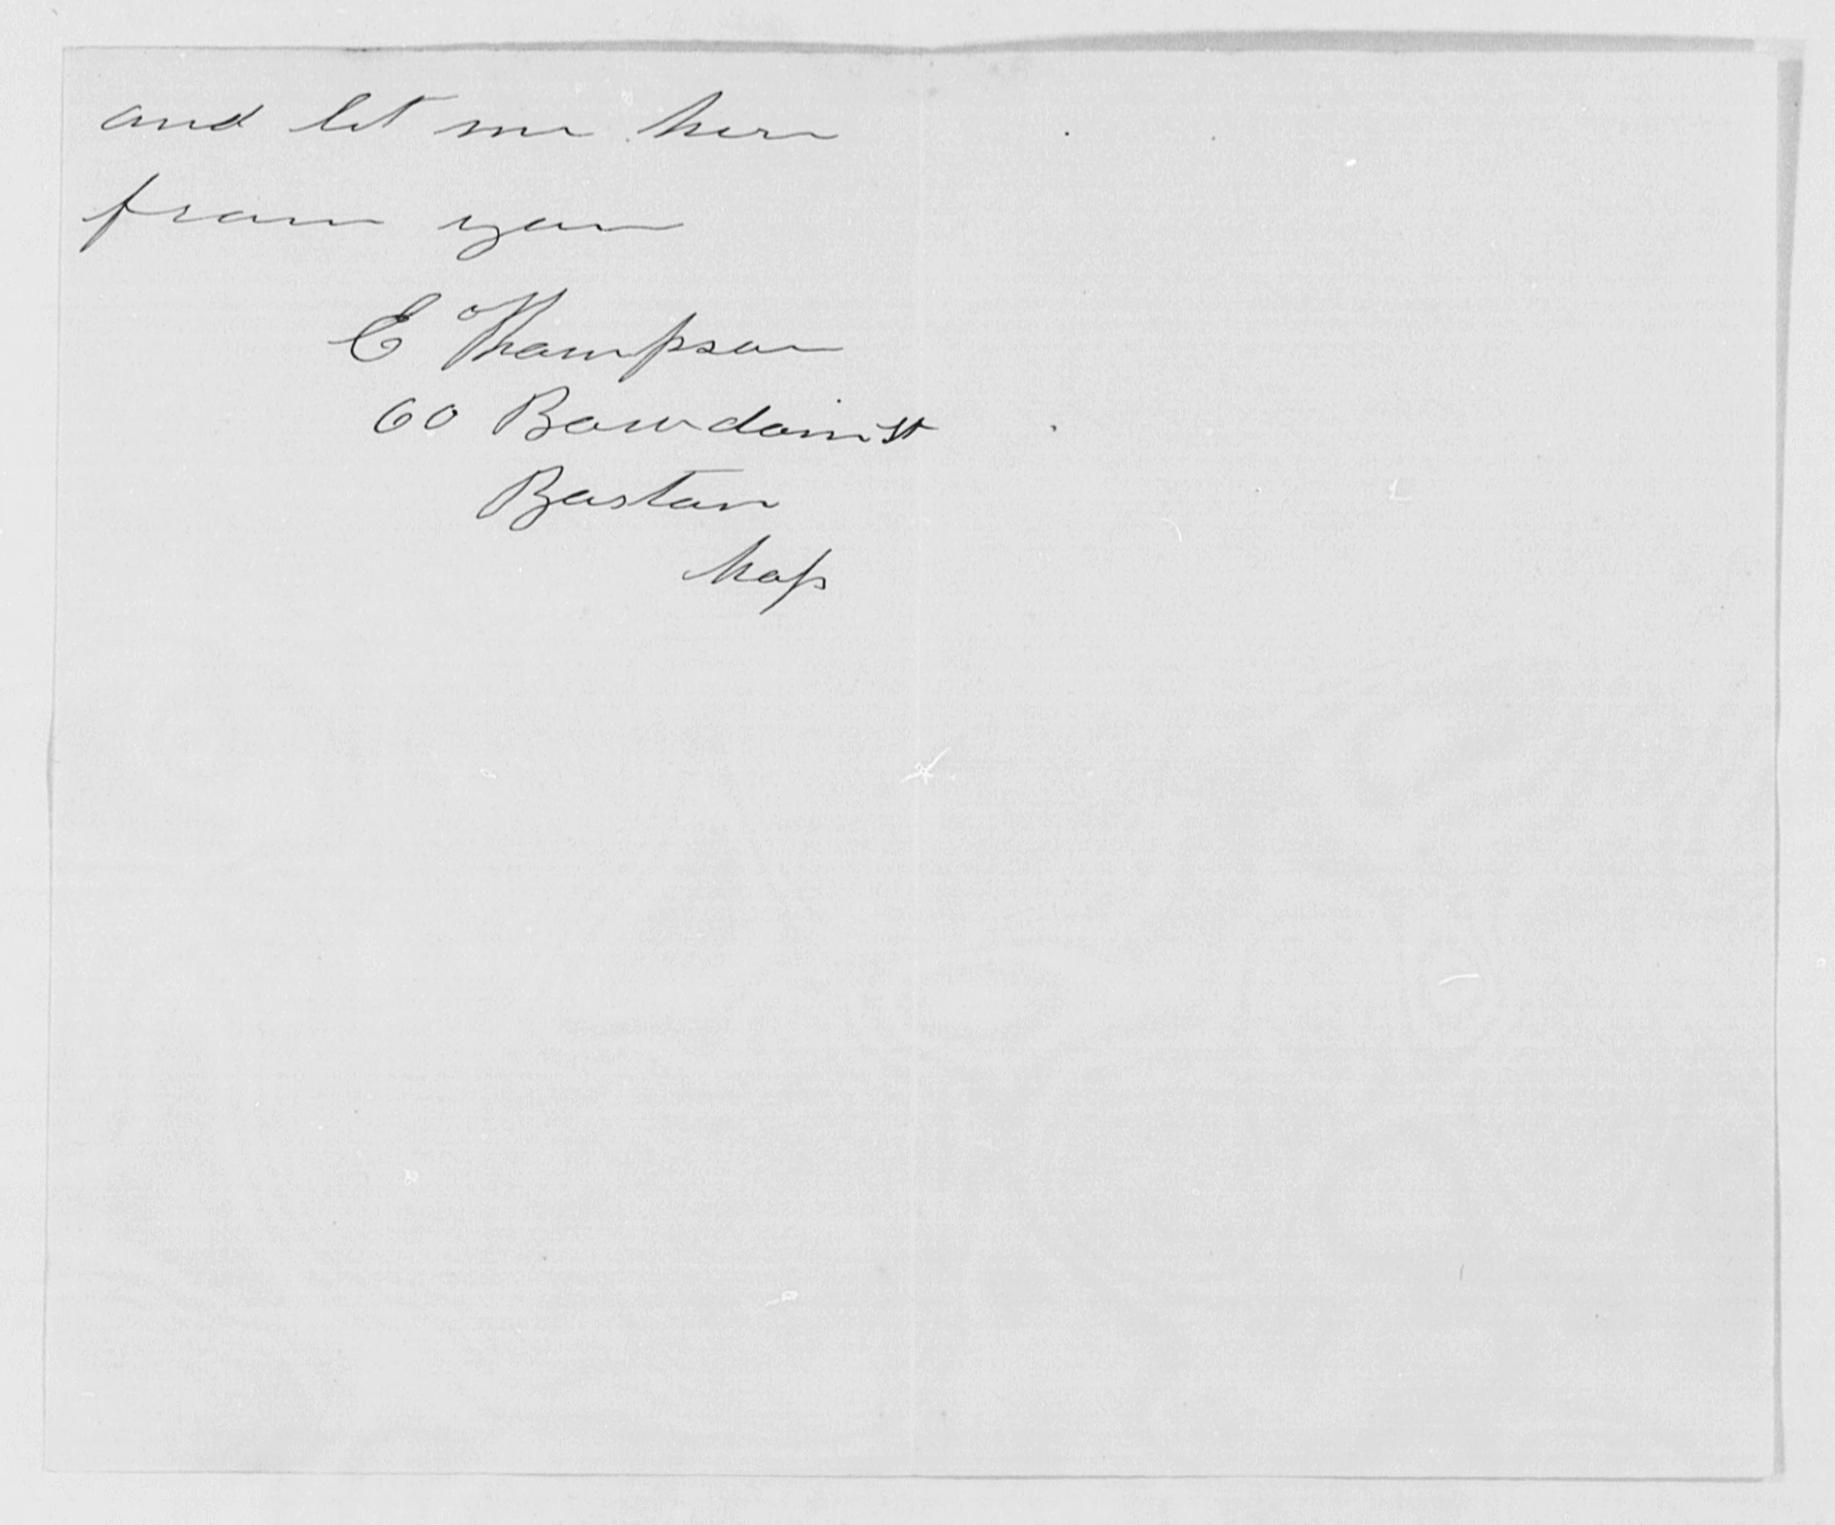 and let me here
from you
E Thompson
60 Bowdoin st
Boston
Mass